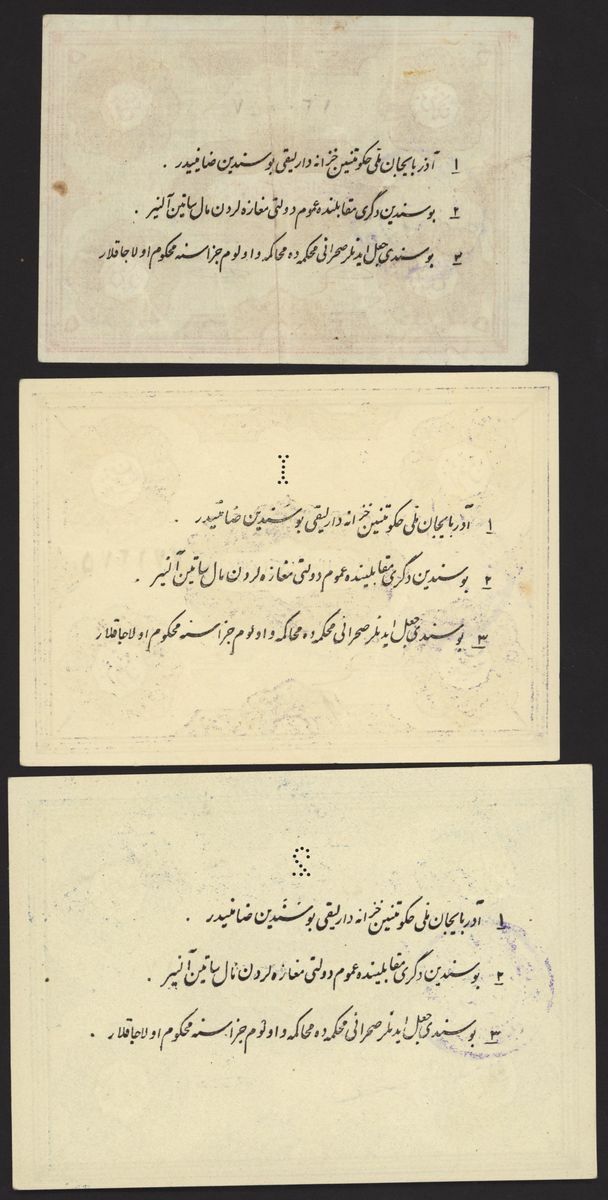 ۱ آذربایجان ملی حکومتینین خزانه داریلیقی بو سندین ضامنیدر .
۲ بو سندین دگری مقابلنده عموم دولتی مغازه لردن مال ساتین آلنیر .
۳ بو سندی جعل ایدنلر صحرائی محکمه ده محاکمه و اولوم جزاسنه محکوم اولاجاقلار
I
۱ آذربایجان ملی حکومتینین خزانه داریلیقی بو سندین ضامنیدر .
۲ بو سندین دگری مقابلینده عموم دولتی مغازه لردن مال ساتین آلنیر .
۳ بو سندی جعل ایدنلر صحرائی محکمه ده محاکمه و اولوم جزاسنه محکوم اولاجاقلار
2
۱ آذربایجان ملی حکومتینین خزانه داریلیقی بو سندین ضامنیدر .
۲ بو سندین دگری مقابلینده عموم دولتی مغازه لردن مال ساتین آلنیر .
۳ بو سندی جعل ایدنلر صحرائی محکمه ده محاکمه و اولوم جزاسنه محکوم اولاجاقلار .